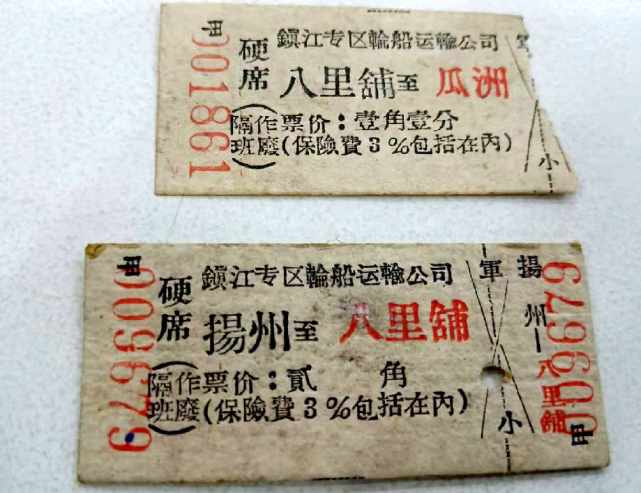 甲
001861
硬席
鎮江专区輪船运輸公司
八里舖至 瓜洲
(隔班作廢) 票价：壹角壹分
(保險費3%包括在內)
小
甲
009679
硬席
鎮江专区輪船运輸公司
揚州至 八里舖
(隔班作廢) 票价：貳 角
(保險費3%包括在內)
軍
小
揚州—八里舖
009679
甲